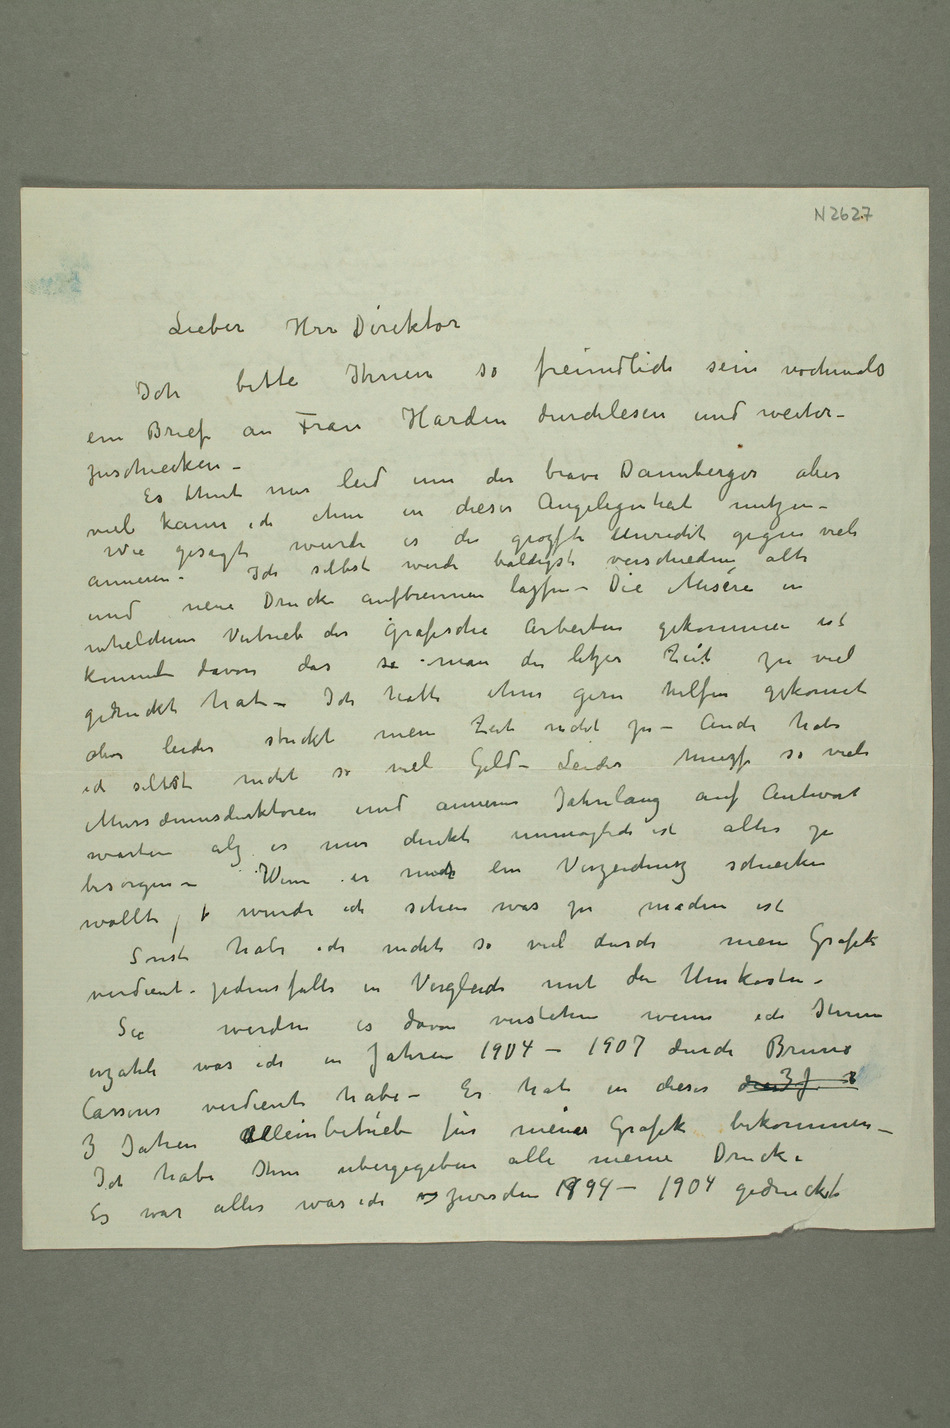 N 2627
Lieber Herr Direktor
Ich bitte Ihnen so freundlich sein nochmals
ein Brief an Frau Harden durchlesen und weiter–
zuschiecken –
Es thut mir leid um der brave Dannberger aber
viel kann ich ihm in dieser Angelegenheit nutzen –
Wie gesagt wurde es die grozfte Unrecht gegen viele
anneren – Ich selbst werde baldigst verschiedene alte
und neue Drucke aufbrennen lazfen – Die Misére in
whelchem Vertrieb der grafische Arbeiten gekommen ist
kommt davon das se man der letzer Zeit zu viel
gedruckt hat – Ich hatte ihm gern helfen gekonnt
aber leider streckt mein Zeit nicht zu – Auch habe
ich selbst nicht so viel Geld – Leider muzf so viele
Mussæumsdirektoren und anneren Jahrelang auf Antwort
warten alz es mir direkt unmøglich ist alles zu
besorgen – Wenn er mich ein Verzeichnitz schiecken
wollte, wurde ich sehen was zu machen ist
Sonst habe ich nicht so viel durch mein Grafik
verdient – jedenfalls in Vergleich mit den Unkosten –
Sie werden es davon verstehen wenn ich Ihnen
erzahle was ich in Jahren 1904 – 1907 durch Bruno
Cassirer verdient habe – Er hat in dieser
3 Jahren Alleinbetrieb für meine Grafik bekommen –
Ich habe Ihm ubergegeben alle meine Drucke
Es war alles was ich zwischen 1894 – 1904 gedruckt